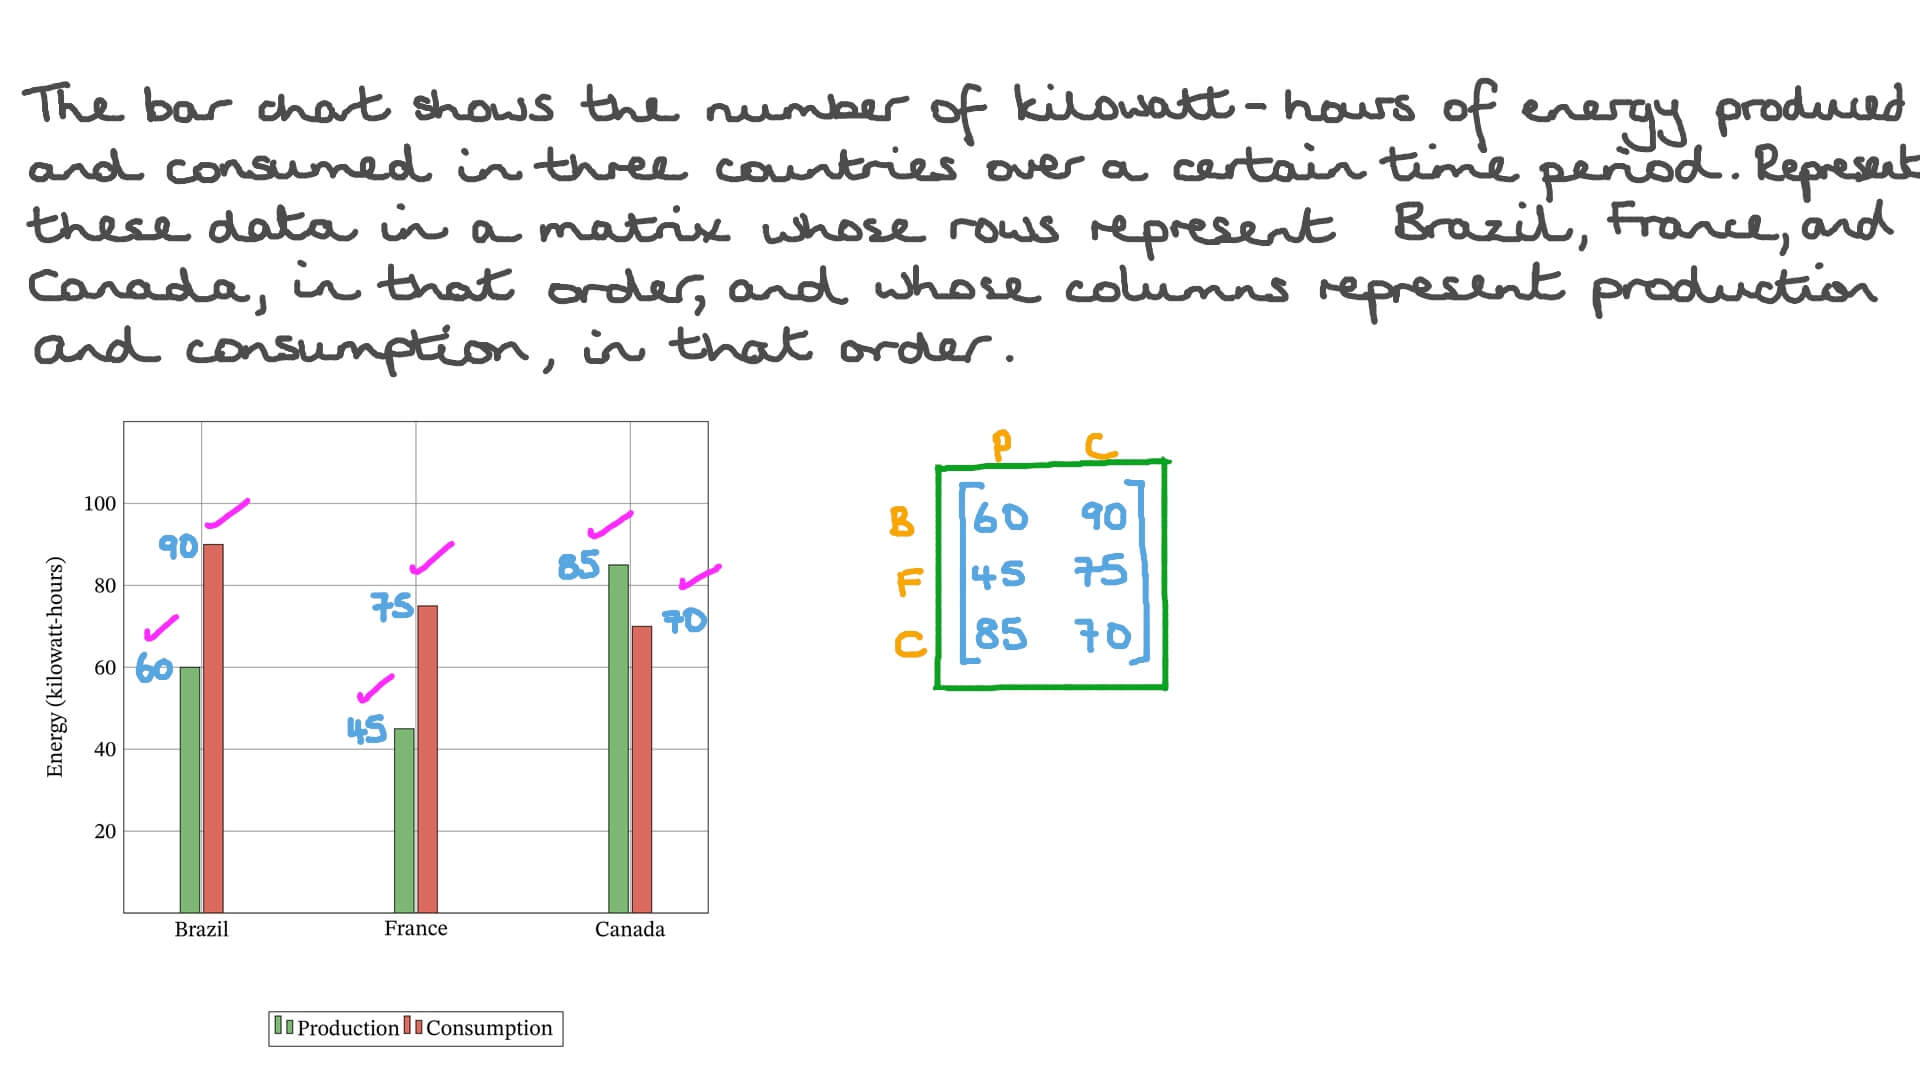 The bar chart shows the number of kilowatt-hours of energy produced
and consumed in three countries over a certain time period. Represent
these data in a matrix whose rows represent Brazil, France, and
Canada, in that order, and whose columns represent production
and consumption, in that order.
Energy (kilowatt-hours)
100
80
60
40
20
90
60
75
45
85
70
Brazil France Canada
Production Consumption
P C
B 60 90
F 45 75
C 85 70